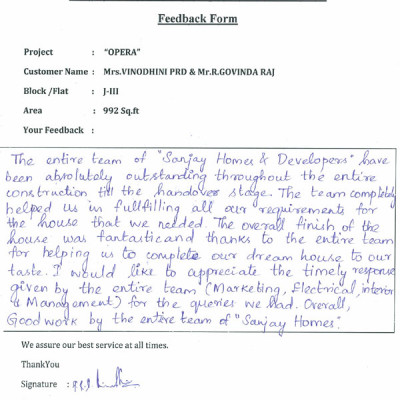 Feedback Form
Project : "OPERA"
Customer Name : Mrs.VINODHINI PRD & Mr.R.GOVINDA RAJ
Block /Flat : J-III
Area : 992 Sq.ft
Your Feedback :
The entire team of "Sanjay Homes & Developers" have
been absolutely outstanding throughout the entire
construction till the handover stage. The team completely
helped us in fullfilling all our requirements for
the house that we needed. The overall finish of the
house was fantastic and thanks to the entire team
for helping us to complete our dream house to our
taste. I would like to appreciate the timely response
given by the entire team (Marketing, Electrical, interior
& Management) for the queries we had. Overall,
Good work by the entire team of "Sanjay Homes".
We assure our best service at all times.
ThankYou
Signature :